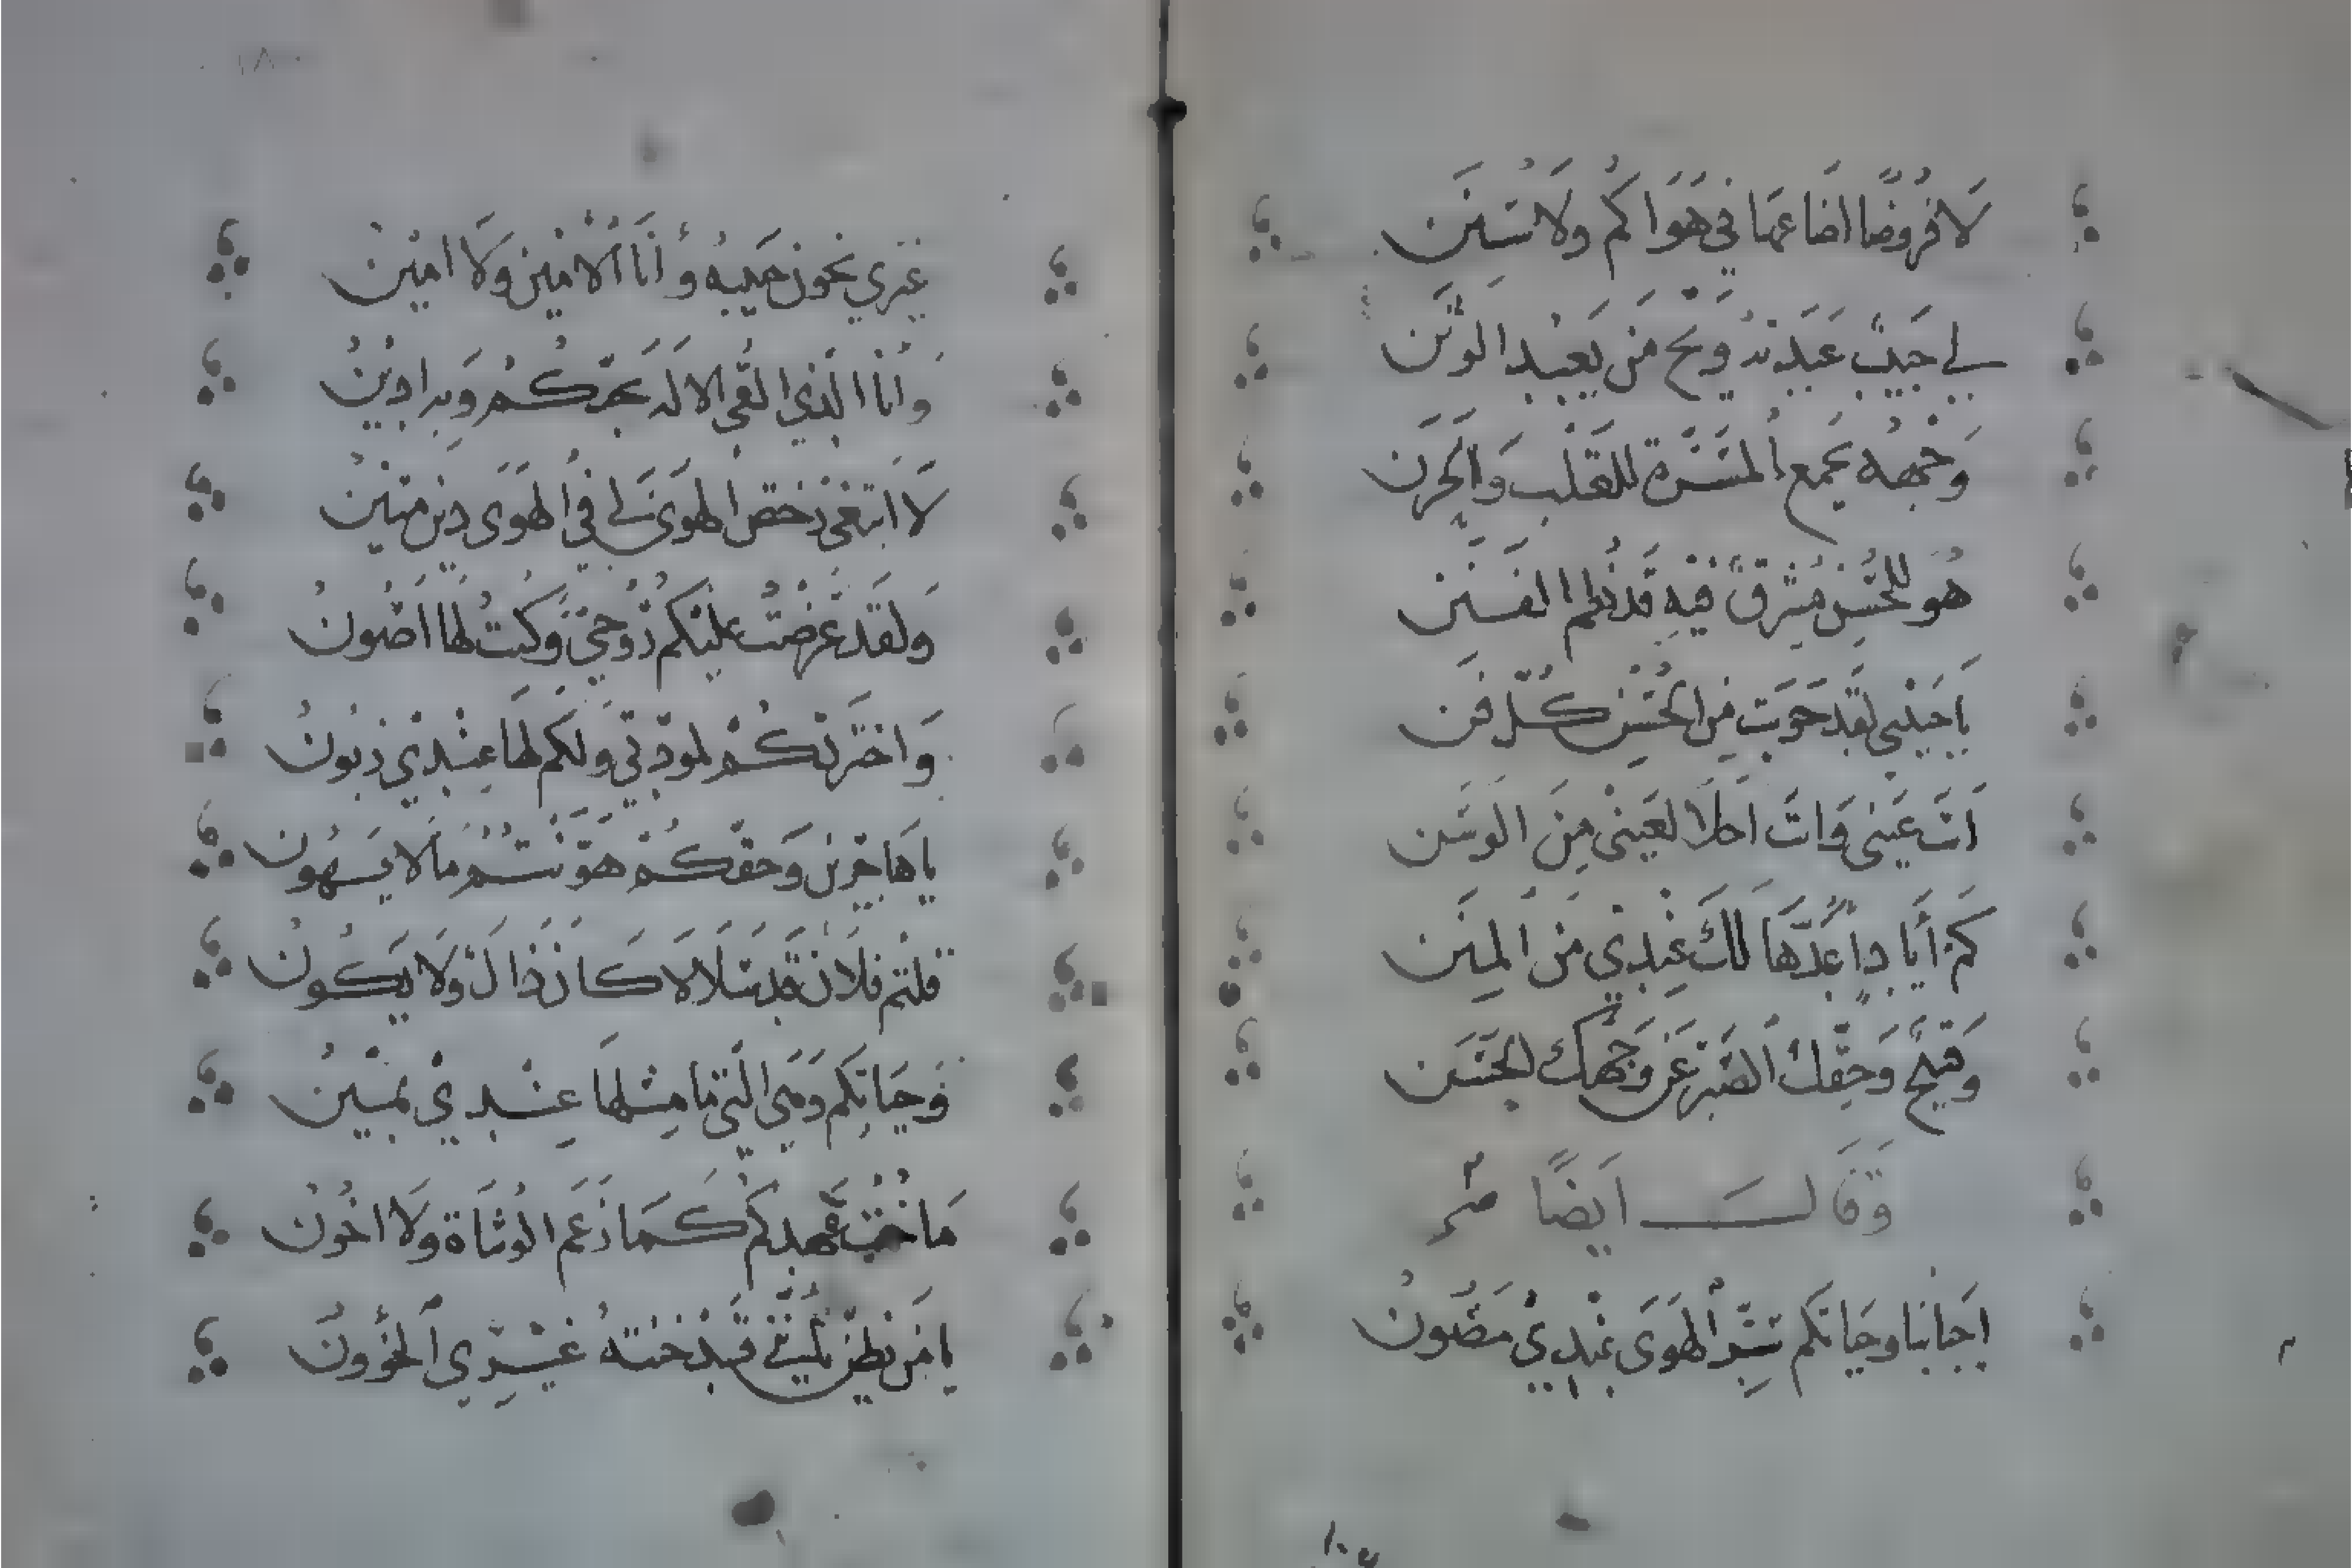 لَا فُرُوضًا اضَاعَهَا فِي هَوَاكُم وَلَا سُنَن
لي حَبيبٌ عَبَدتهُ وَيحَ مَن يَعبُد الوَثَن
وَجهُه يَجمع المسَرَّة للقَلب وَالحَزَن
هُو للحُسنِ مُشرقٌ فيهِ قَد تظهر الفتن
يَا حَبيبي لقَد حَوَيت مِنَ الحُسنِ كُلّ فَن
اَنتَ عَيني وَاَنتَ اَحلَا لعَيني مِنَ الوَسَن
كَم أيَادٍ اَعُدّهَا لكَ عِندِي مَنَ المِنَن
وَقبيحٌ وَحَقِّكَ الصَبر عَن وَجهكَ الحَسَن
وَقَالَ اَيضًا
احبَابنَا وَحيَاتكم سِرّ الهَوَى عندِي مَصُونُ
غيري يخون حَبيبهُ وأنَا الأمين وَلَا امينُ
وَأنَا الذي القى الالَه بحبّكُم وَبه ادينُ
لَا ابتغي رخص الهوى لي في الهَوَى دين متينُ
وَلقَد عَرَضتُ عليكم رُوحي وَكنتُ لهَا اَصُونُ
وَاخترتكُم لمودّتي ولكم لهَا عِندي زبُونُ
يا هَاجرين وَحقّكُم هَوّنتُم مَا لا يَهُون
قلتُم فلَان قَد سَلَا لا كَان ذَا لَ وَلَا يَكُونُ
فَوحيَاتِكم وَهيَ الّتي مَا مِثلهَا عِندِي يمينُ
مَا خُنتُ عَهدكُم كَمَا زَعَم الوُشَاة وَلَا اخُونُ
يا مَن يظنّ بأنّني قَد خنتهُ غَيري الخَؤُونُ